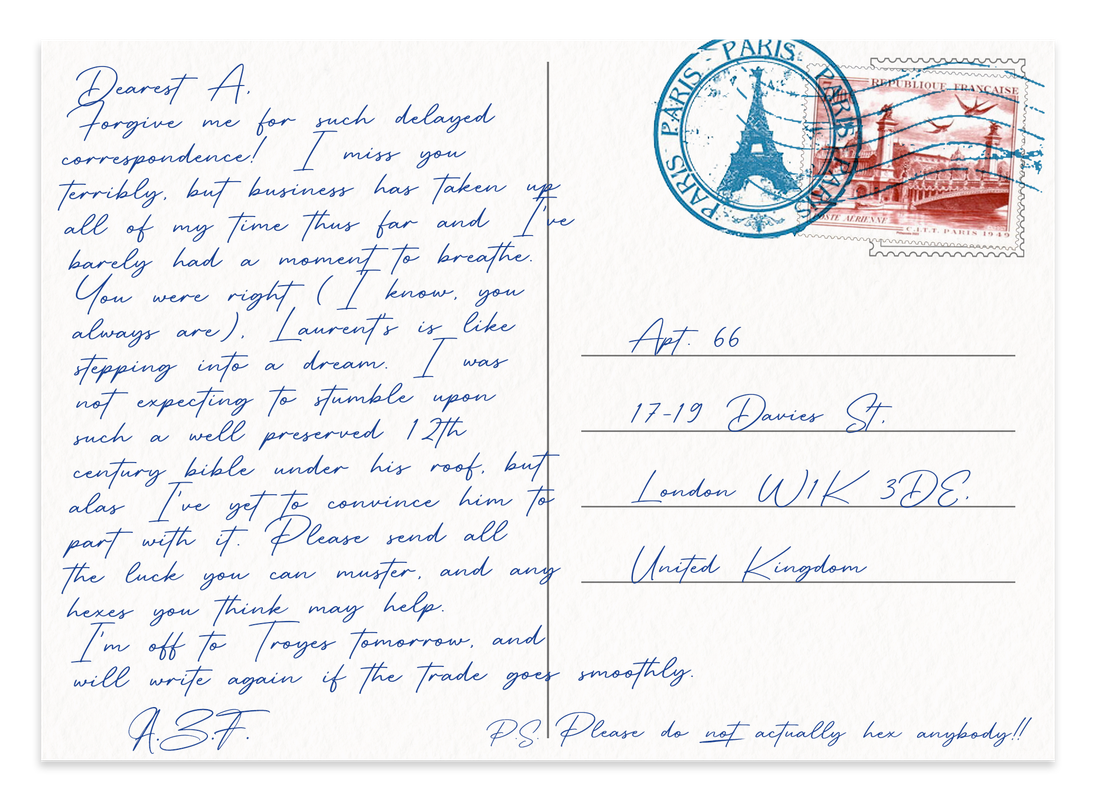 Dearest A,
Forgive me for such delayed
correspondence! I miss you
terribly, but business has taken up
all of my time thus far and I've
barely had a moment to breathe.
You were right (I know, you
always are), Laurent's is like
stepping into a dream. I was
not expecting to stumble upon
such a well preserved 12th
century bible under his roof, but
alas I've yet to convince him to
part with it. Please send all
the luck you can muster, and any
hexes you think may help.
I'm off to Troyes tomorrow, and
will write again if the trade goes smoothly.
A.Z.F.
P.S. Please do not actually hex anybody!!
PARIS - PARIS - PARIS - PARIS - PARIS
REPUBLIQUE - FRANÇAISE
POSTE AERIENNE
C.I.T.T. PARIS 1949
Apt. 66
17-19 Davies St.
London W1K 3DE.
United Kingdom